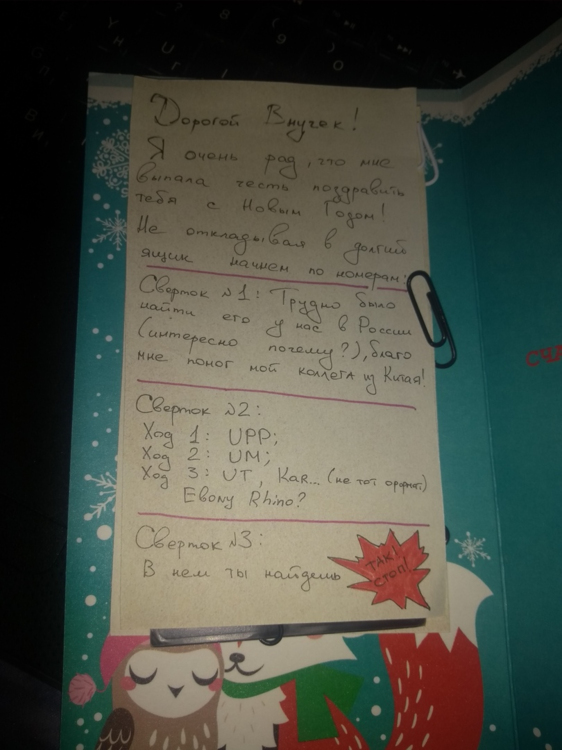 Дорогой Внучек!
Я очень рад, что мне
выпала честь поздравить
тебя с Новым Годом!
Не откладывая в долгий
ящик начнем по номерам:
Сверток №1: Трудно было
найти его у нас в России
(интересно почему?), благо
мне помог мой коллега из Китая!
Сверток №2:
Ход 1: UPP;
Ход 2: UM;
Ход 3: UT, Kar... (не тот )
Ebony Rhino?
Сверток №3:
В нем ты найдешь
ТАК!
СТОП!